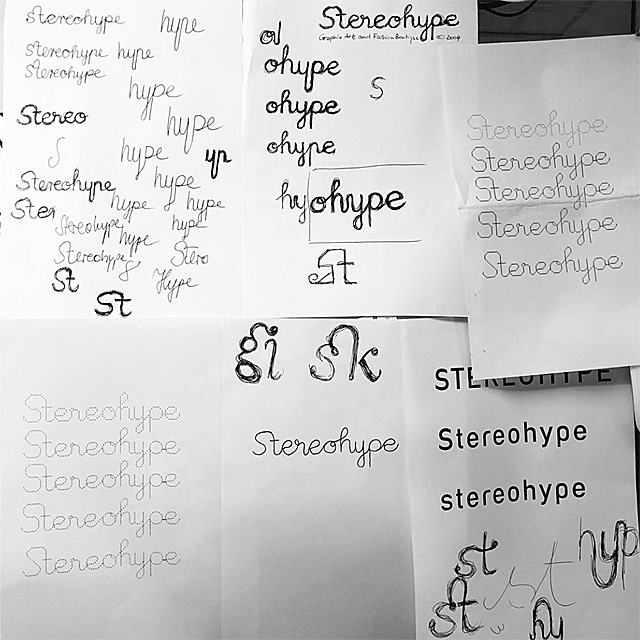 Stereohype hype
Stereohype hype
Stereohype
hype
Stereo
hype
S
hype yp
Stereohype hype
hype hype
Ster
Stereohype hype
hype
Stereohype Stero
S
St Hype
St
Stereohype
Graphic Art and Fashion Boutique © 2004
ohype
S
ohype
ohype
hy ohype
St
Stereohype
Stereohype
Stereohype
Stereohype
Stereohype
Stereohype
Stereohype
Stereohype
Stereohype
Stereohype
gi sk
Stereohype
STEREOHYPE
Stereohype
stereohype
st st hyp
St